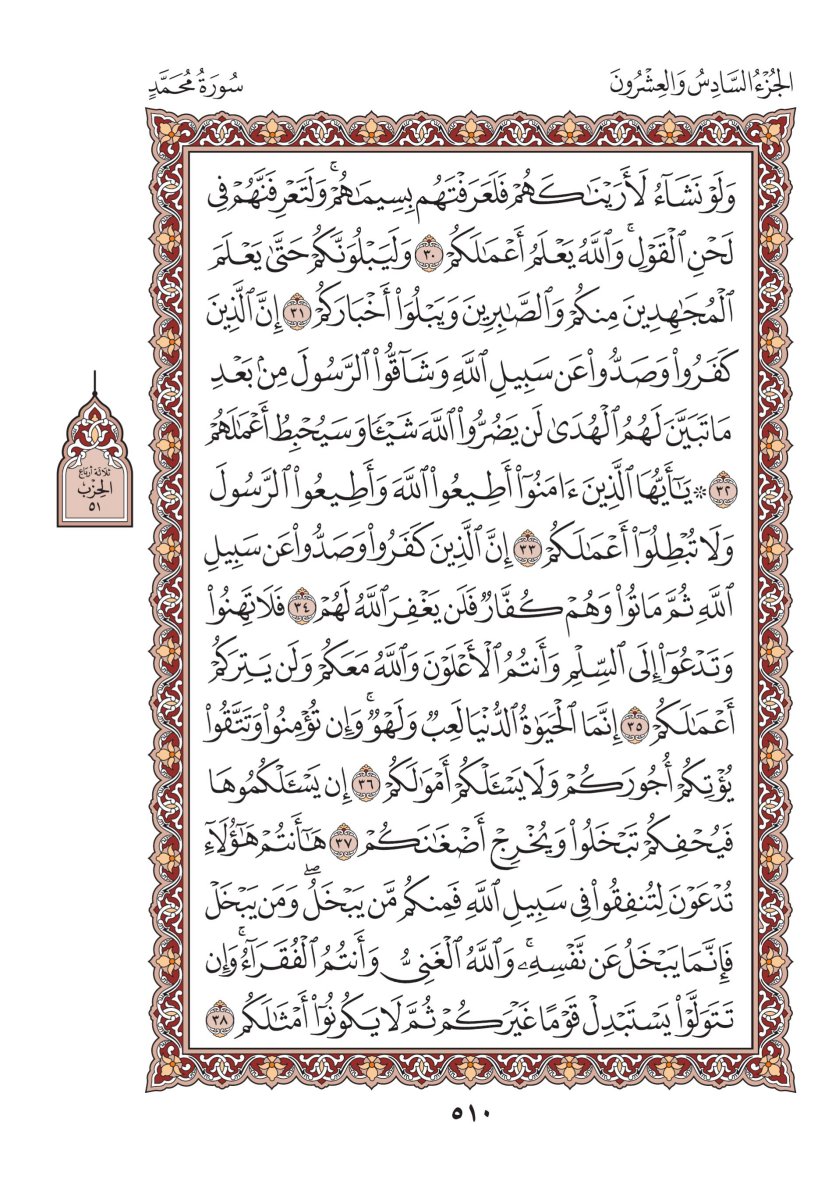 الجُزْءُ السَّادِسُ وَالعِشْرُونَ
سُورَةُ مُحَمَّدٍ
وَلَوْ نَشَآءُ لَأَرَيْنَٰكَهُمْ فَلَعَرَفْتَهُم بِسِيمَٰهُمْۚ وَلَتَعْرِفَنَّهُمْ فِي
لَحْنِ ٱلْقَوْلِۚ وَٱللَّهُ يَعْلَمُ أَعْمَٰلَكُمْ ٣٠ وَلَنَبْلُوَنَّكُمْ حَتَّىٰ نَعْلَمَ
ٱلْمُجَٰهِدِينَ مِنكُمْ وَٱلصَّٰبِرِينَ وَنَبْلُوَا۟ أَخْبَارَكُمْ ٣١ إِنَّ ٱلَّذِينَ
كَفَرُوا۟ وَصَدُّوا۟ عَن سَبِيلِ ٱللَّهِ وَشَآقُّوا۟ ٱلرَّسُولَ مِنۢ بَعْدِ
مَا تَبَيَّنَ لَهُمُ ٱلْهُدَىٰ لَن يَضُرُّوا۟ ٱللَّهَ شَيْـًٔا وَسَيُحْبِطُ أَعْمَٰلَهُمْ
٣٢ ۞ يَٰٓأَيُّهَا ٱلَّذِينَ ءَامَنُوٓا۟ أَطِيعُوا۟ ٱللَّهَ وَأَطِيعُوا۟ ٱلرَّسُولَ
وَلَا تُبْطِلُوٓا۟ أَعْمَٰلَكُمْ ٣٣ إِنَّ ٱلَّذِينَ كَفَرُوا۟ وَصَدُّوا۟ عَن سَبِيلِ
ٱللَّهِ ثُمَّ مَاتُوا۟ وَهُمْ كُفَّارٌ فَلَن يَغْفِرَ ٱللَّهُ لَهُمْ ٣٤ فَلَا تَهِنُوا۟
وَتَدْعُوٓا۟ إِلَى ٱلسِّلْمِ وَأَنتُمُ ٱلْأَعْلَوْنَ وَٱللَّهُ مَعَكُمْ وَلَن يَتِرَكُمْ
أَعْمَٰلَكُمْ ٣٥ إِنَّمَا ٱلْحَيَوٰةُ ٱلدُّنْيَا لَعِبٌ وَلَهْوٌۚ وَإِن تُؤْمِنُوا۟ وَتَتَّقُوا۟
يُؤْتِكُمْ أُجُورَكُمْ وَلَا يَسْـَٔلْكُمْ أَمْوَٰلَكُمْ ٣٦ إِن يَسْـَٔلْكُمُوهَا
فَيُحْفِكُمْ تَبْخَلُوا۟ وَيُخْرِجْ أَضْغَٰنَكُمْ ٣٧ هَٰٓأَنتُمْ هَٰٓؤُلَآءِ
تُدْعَوْنَ لِتُنفِقُوا۟ فِي سَبِيلِ ٱللَّهِ فَمِنكُم مَّن يَبْخَلُۖ وَمَن يَبْخَلْ
فَإِنَّمَا يَبْخَلُ عَن نَّفْسِهِۦۚ وَٱللَّهُ ٱلْغَنِيُّ وَأَنتُمُ ٱلْفُقَرَآءُۚ وَإِن
تَتَوَلَّوْا۟ يَسْتَبْدِلْ قَوْمًا غَيْرَكُمْ ثُمَّ لَا يَكُونُوٓا۟ أَمْثَٰلَكُم ٣٨
ثلاثة أرباع
الحِزْب
٥١
٥١٠